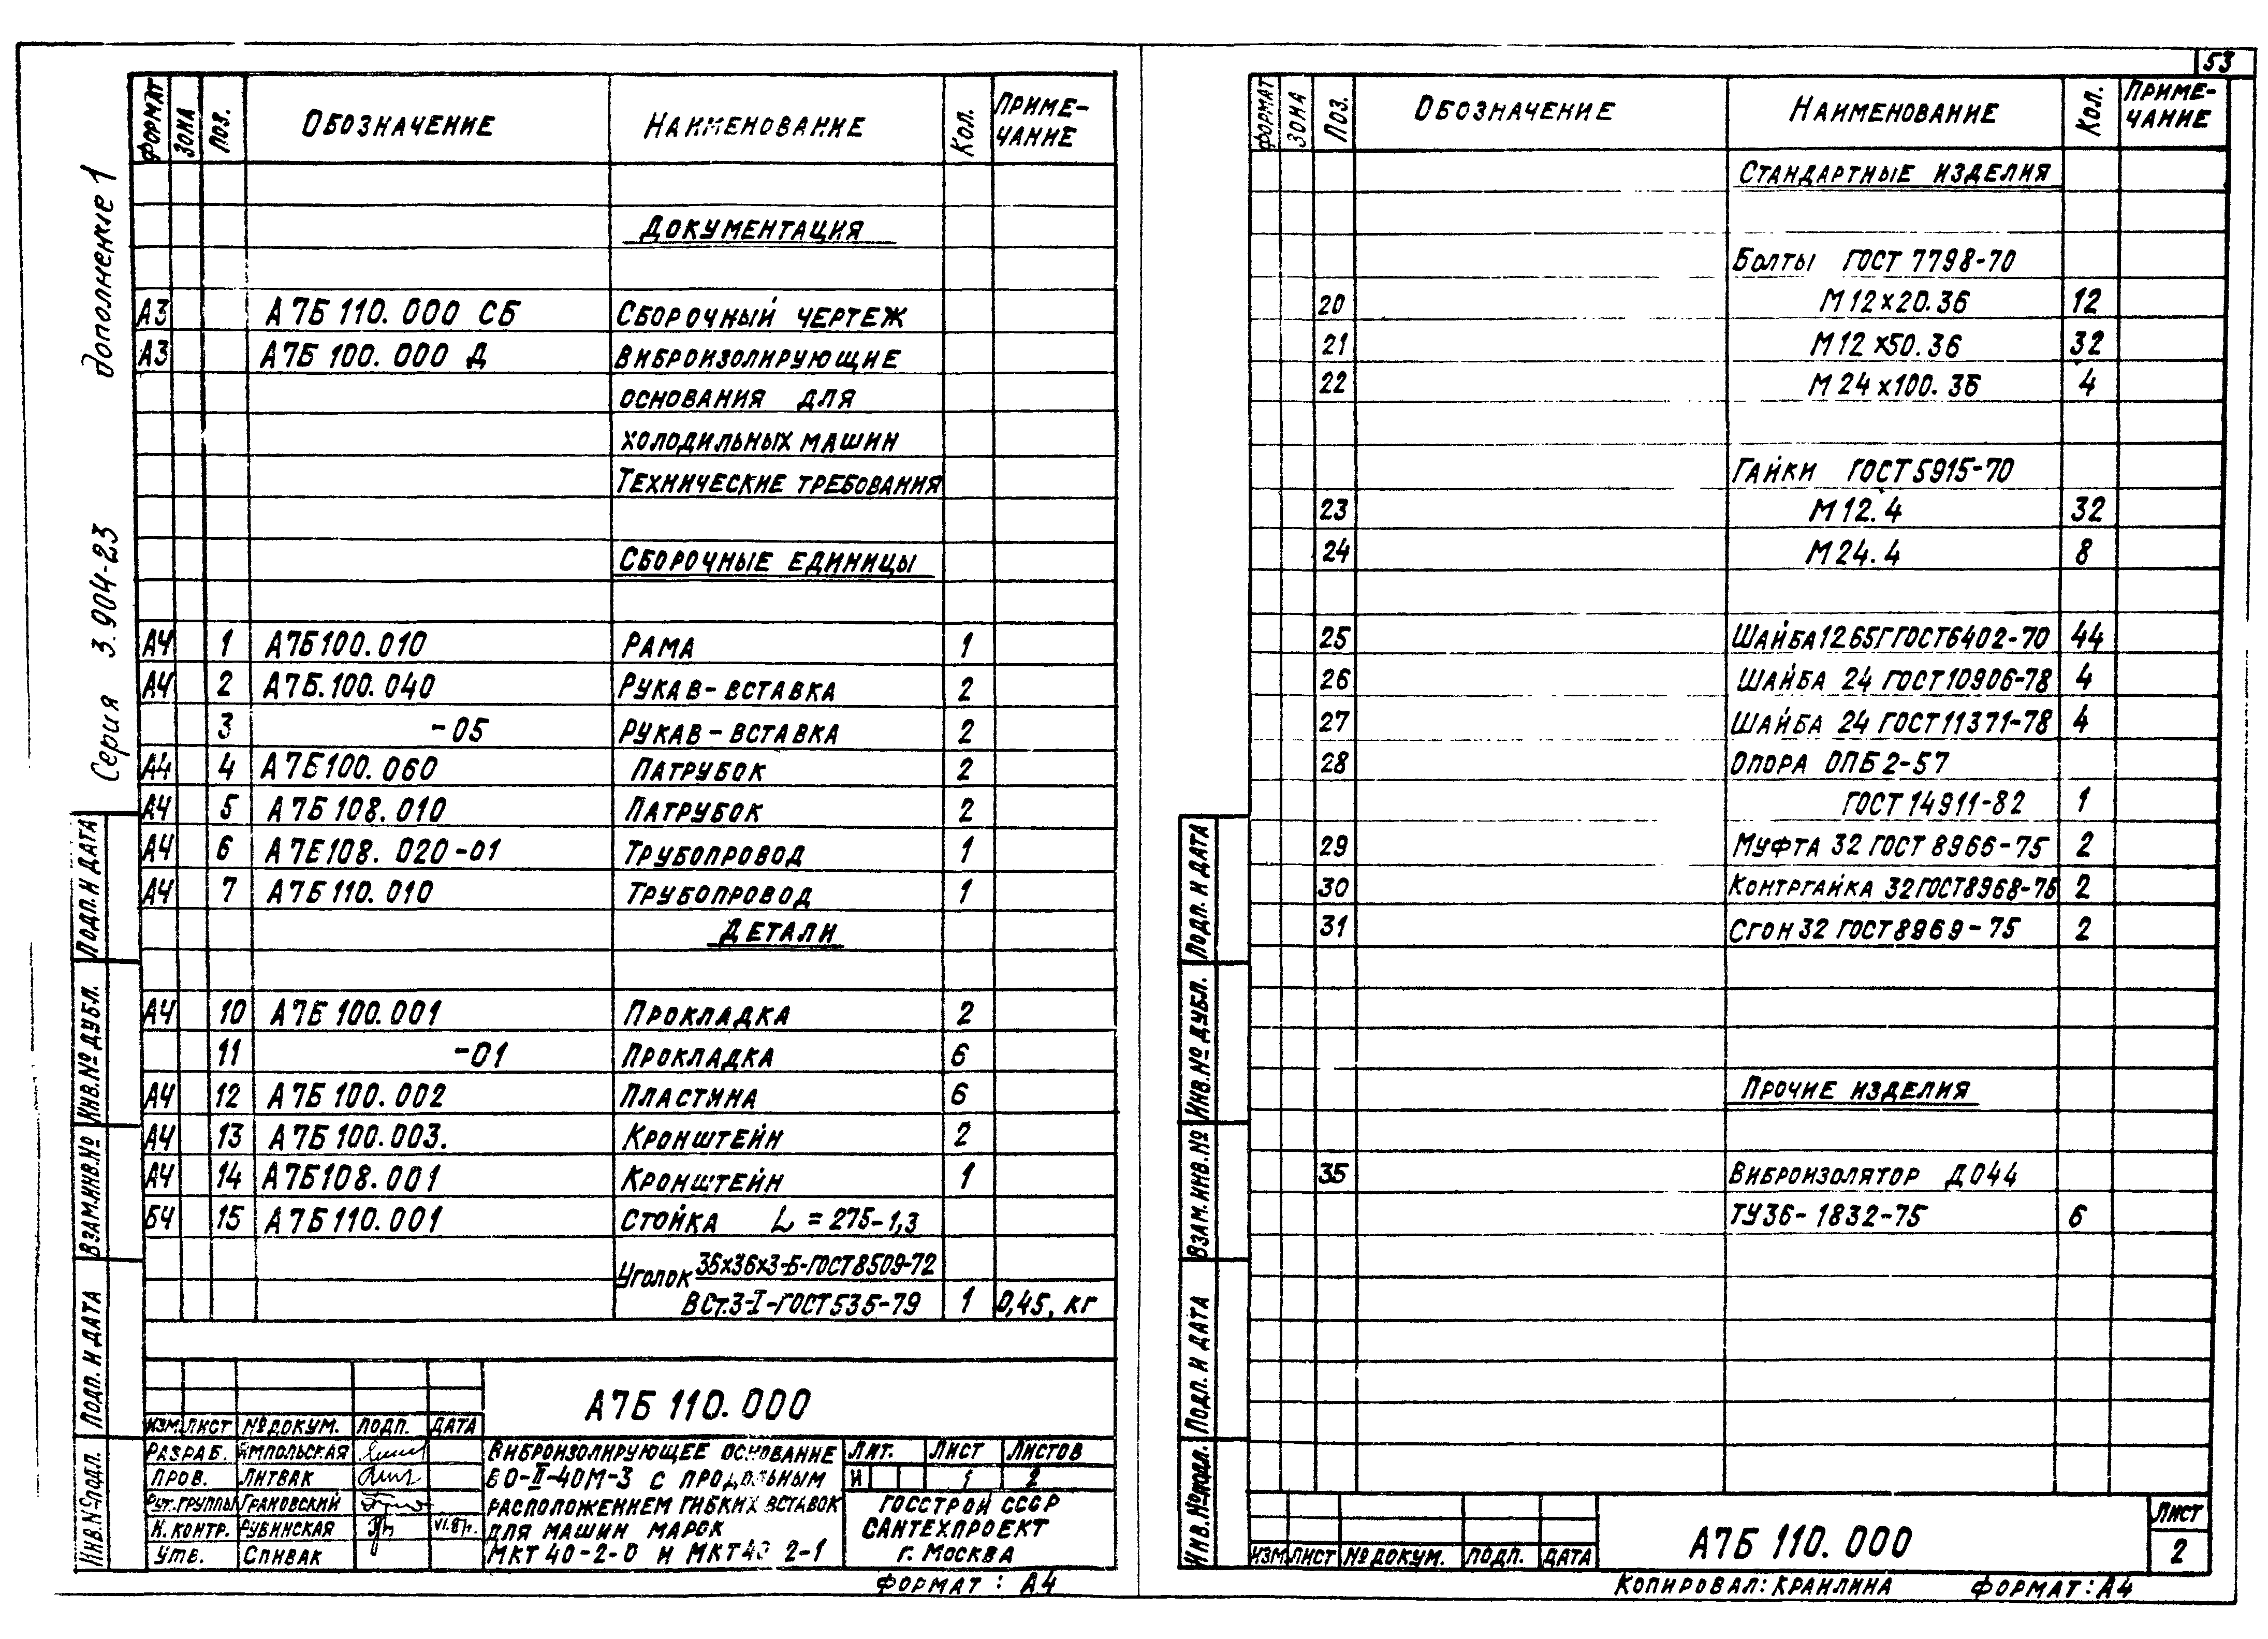 53
Дополнение 1
Серия 3.904-23
ФОРМАТ ЗОНА ПОЗ. ОБОЗНАЧЕНИЕ НАИМЕНОВАНИЕ КОЛ. ПРИМЕ-
ЧАНИЕ
ДОКУМЕНТАЦИЯ
А3 А7Б 110.000 СБ СБОРОЧНЫЙ ЧЕРТЕЖ
А3 А7Б 100.000 Д ВИБРОИЗОЛИРУЮЩИЕ
ОСНОВАНИЯ ДЛЯ
ХОЛОДИЛЬНЫХ МАШИН
ТЕХНИЧЕСКИЕ ТРЕБОВАНИЯ
СБОРОЧНЫЕ ЕДИНИЦЫ
А4 1 А7Б100.010 РАМА 1
А4 2 А7Б.100.040 РУКАВ-ВСТАВКА 2
3 -05 РУКАВ-ВСТАВКА 2
А4 4 А7Б100.060 ПАТРУБОК 2
А4 5 А7Б108.010 ПАТРУБОК 2
А4 6 А7Б108.020-01 ТРУБОПРОВОД 1
А4 7 А7Б110.010 ТРУБОПРОВОД 1
ДЕТАЛИ
А4 10 А7Б 100.001 ПРОКЛАДКА 2
11 -01 ПРОКЛАДКА 6
А4 12 А7Б 100.002 ПЛАСТИНА 6
А4 13 А7Б 100.003. КРОНШТЕЙН 2
А4 14 А7Б108.001 КРОНШТЕЙН 1
БЧ 15 А7Б110.001 СТОЙКА L = 275-1,3
УГОЛОК 36х36х3-Б-ГОСТ8509-72
ВСт.3-I-ГОСТ535-79 1 0,45, кг
ПОДП. И ДАТА
ИНВ.№ ДУБЛ.
ВЗАМ.ИНВ.№
ПОДП. И ДАТА
ИНВ.№ ПОДЛ.
А7Б 110.000
ИЗМ. ЛИСТ № ДОКУМ. ПОДП. ДАТА
РАЗРАБ. ЯМПОЛЬСКАЯ
ПРОВ. ЛИТВАК
РУК.ГРУППЫ ГРАНОВСКИЙ
Н.КОНТР. РУБИНСКАЯ
УТВ. СПИВАК
ВИБРОИЗОЛИРУЮЩЕЕ ОСНОВАНИЕ
ВО-II-40М-3 С ПРОДОЛЬНЫМ
РАСПОЛОЖЕНИЕМ ГИБКИХ ВСТАВОК
ДЛЯ МАШИН МАРОК
МКТ 40-2-0 И МКТ40 2-1
ЛИТ. ЛИСТ ЛИСТОВ
И 1 2
ГОССТРОЙ СССР
САНТЕХПРОЕКТ
г. МОСКВА
ФОРМАТ: А4
ФОРМАТ ЗОНА ПОЗ. ОБОЗНАЧЕНИЕ НАИМЕНОВАНИЕ КОЛ. ПРИМЕ-
ЧАНИЕ
СТАНДАРТНЫЕ ИЗДЕЛИЯ
БОЛТЫ ГОСТ 7798-70
20 М12х20.36 12
21 М12х50.36 32
22 М24х100.36 4
ГАЙКИ ГОСТ5915-70
23 М12.4 32
24 М24.4 8
25 ШАЙБА12.65ГГОСТ6402-70 44
26 ШАЙБА 24 ГОСТ10906-78 4
27 ШАЙБА 24 ГОСТ11371-78 4
28 ОПОРА ОПБ2-57
ГОСТ14911-82 1
29 МУФТА 32 ГОСТ 8966-75 2
30 КОНТРГАЙКА 32ГОСТ8968-75 2
31 СГОН32 ГОСТ8969-75 2
ПРОЧИЕ ИЗДЕЛИЯ
35 ВИБРОИЗОЛЯТОР ДО44
ТУ36-1832-75 6
ПОДП. И ДАТА
ИНВ.№ ДУБЛ.
ВЗАМ.ИНВ.№
ПОДП. И ДАТА
ИНВ.№ ПОДЛ.
ИЗМ ЛИСТ № ДОКУМ. ПОДП. ДАТА
А7Б 110.000
ЛИСТ
2
КОПИРОВАЛ: КРАИЛИНА ФОРМАТ: А4